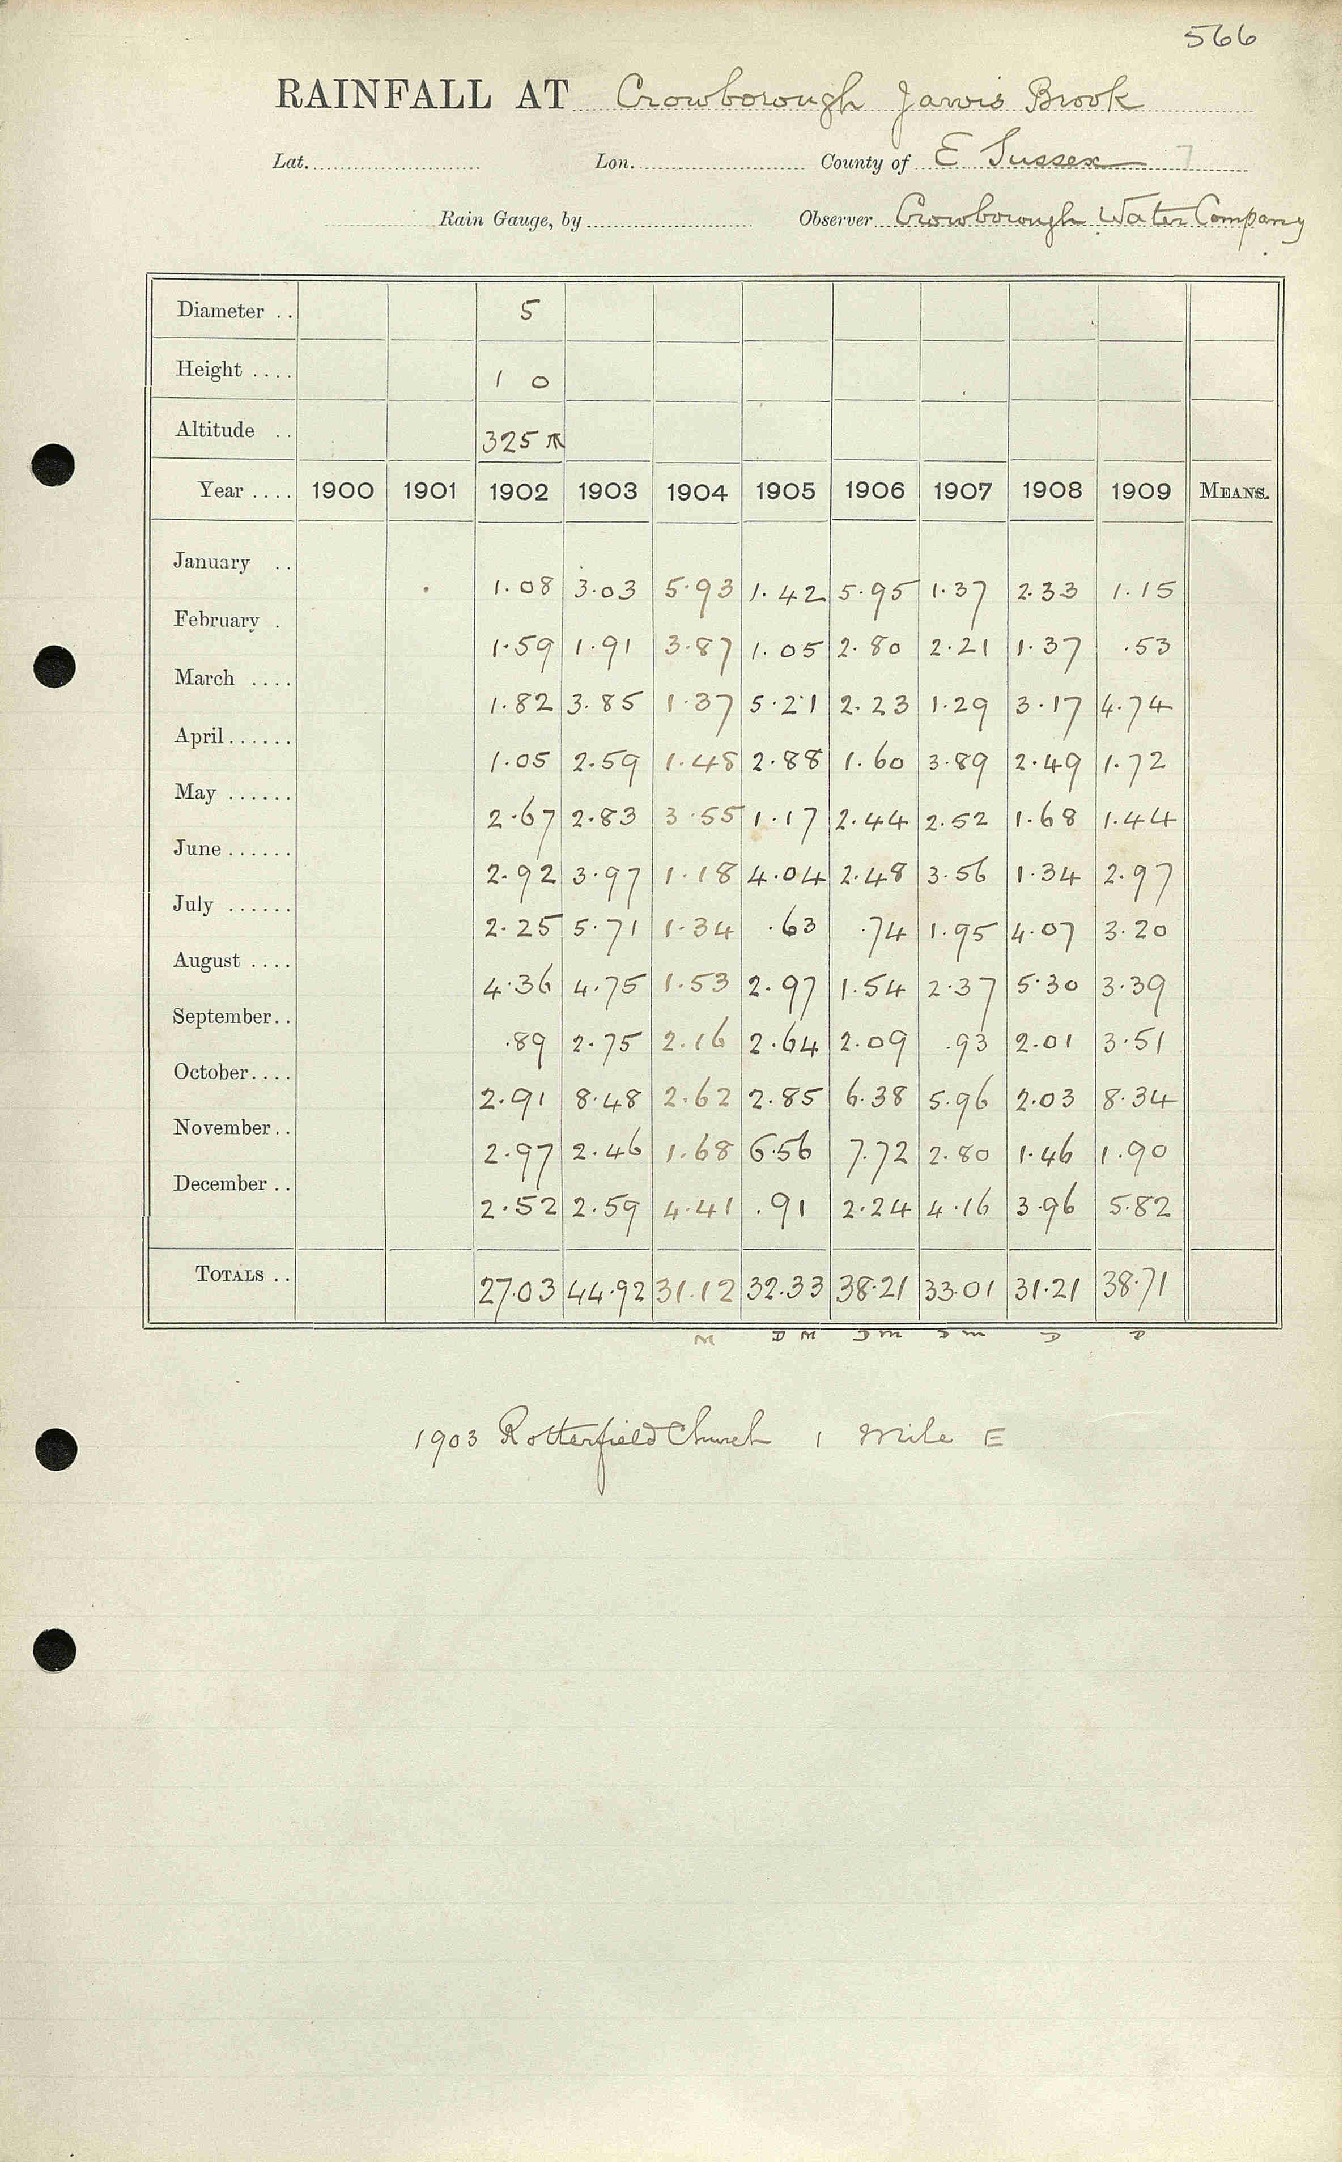 566
RAINFALL AT Crowborough Jarvis Brook
Lat. Lon. County of E Sussex 7
Rain Gauge, by Observer Crowborough Water Company
Diameter .. 5
Height .... 1 0
Altitude .. 325
Year .... 1900 1901 1902 1903 1904 1905 1906 1907 1908 1909 MEANS.
January .. 1.08 3.03 5.93 1.42 5.95 1.37 2.33 1.15
February . 1.59 1.91 3.87 1.05 2.80 2.21 1.37 .53
March .... 1.82 3.85 1.37 5.21 2.23 1.29 3.17 4.74
April...... 1.05 2.59 1.48 2.88 1.60 3.89 2.49 1.72
May ...... 2.67 2.83 3.55 1.17 2.44 2.52 1.68 1.44
June...... 2.92 3.97 1.18 4.04 2.48 3.56 1.34 2.97
July ...... 2.25 5.71 1.34 .63 .74 1.95 4.07 3.20
August .... 4.36 4.75 1.53 2.97 1.54 2.37 5.30 3.39
September.. .89 2.75 2.16 2.64 2.09 .93 2.01 3.51
October.... 2.91 8.48 2.62 2.85 6.38 5.96 2.03 8.34
November.. 2.97 2.46 1.68 6.56 7.72 2.80 1.46 1.90
December .. 2.52 2.59 4.41 .91 2.24 4.16 3.96 5.82
TOTALS .. 27.03 44.92 31.12 32.33 38.21 33.01 31.21 38.71
M D M D M D M D D
1903 Rotterfield Church 1 mile E